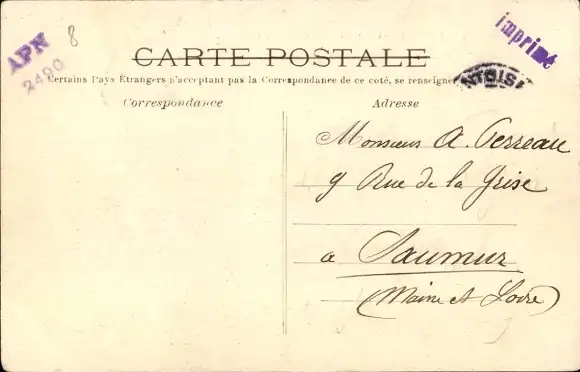 APN
2490
8
imprimé
CARTE POSTALE
Certains Pays Étrangers n'acceptant pas la Correspondance de ce coté, se renseigner
NTOISE
Correspondance
Adresse
Monsieur A. Perreau
9 Rue de la Grise
a Saumur
(Maine et Loire)